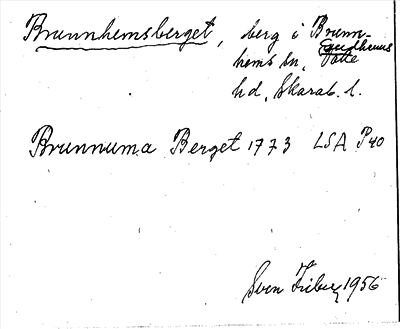 Brunnhemsberget, berg i Brunn-
hems sn, Gudhems
hd, Skarab. l.
Brunnuma Berget 1773 LSA P40
Sven Fribeg 1956